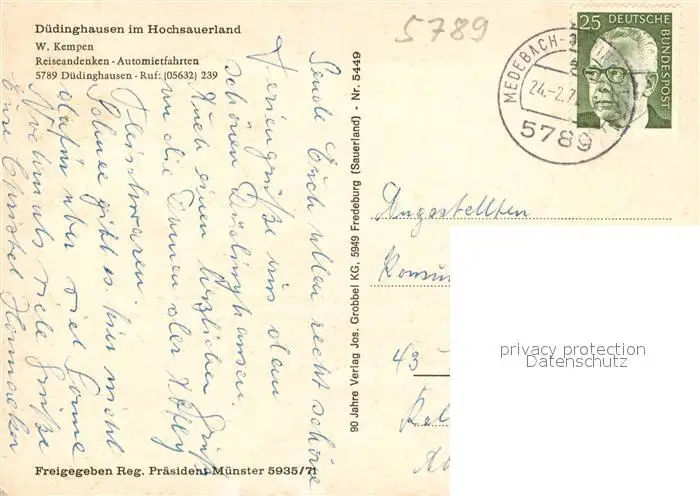 Düdinghausen im Hochsauerland
W. Kempen
Reiseandenken - Automietfahrten
5789 Düdinghausen - Ruf: (05632) 239
Sende Euch allen recht schöne
Feriengrüße aus dem
schönen Düdinghausen.
Auch einen herzlichen Gruß
an die Damen der
Fleischwaren.
Schnee gibt es hier nicht
dafür aber viel Sonne
Nochmals viele Grüße
Eure Christel
Freigegeben Reg. Präsident Münster 5935/71
90 Jahre Verlag Jos. Grobbel KG, 5949 Fredeburg (Sauerland) - Nr. 5449
5789
MEDEBACH-
24.-2.7
5789
25 DEUTSCHE
BUNDESPOST
Angestellten
Konsu
43
privacy protection
Datenschutz